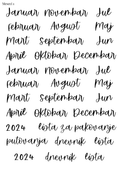 Januar novembar Jul
februar Avgust Maj
Mart Septembar Jun
April Oktobar Decembar
Januar novembar Jul
februar Avgust Maj
Mart Septembar Jun
April Oktobar Decembar
2024 lista za pakovanje
putovanja dnevnik lista
2024 dnevnik lista